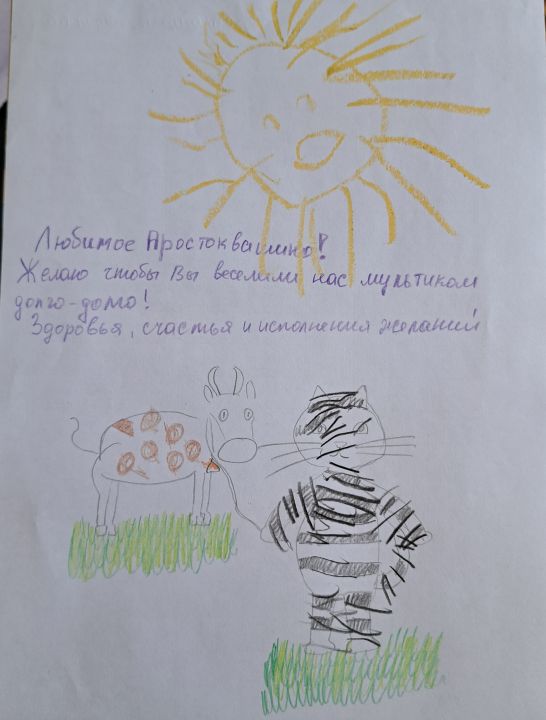 Любимое Простоквашино!
Желаю чтобы Вы веселили нас мультиком
долго-долго!
Здоровья, счастья и исполнения желаний